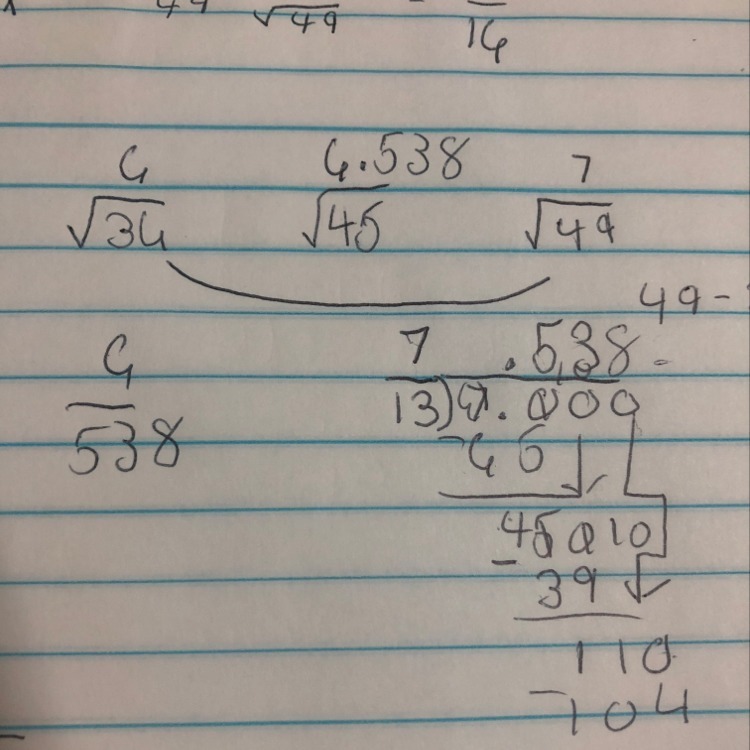 √49 16
6 6.538 7
√36 √45 √49
49-
6 7 .538
538 13)7.000
-65
45010
- 39
110
-104